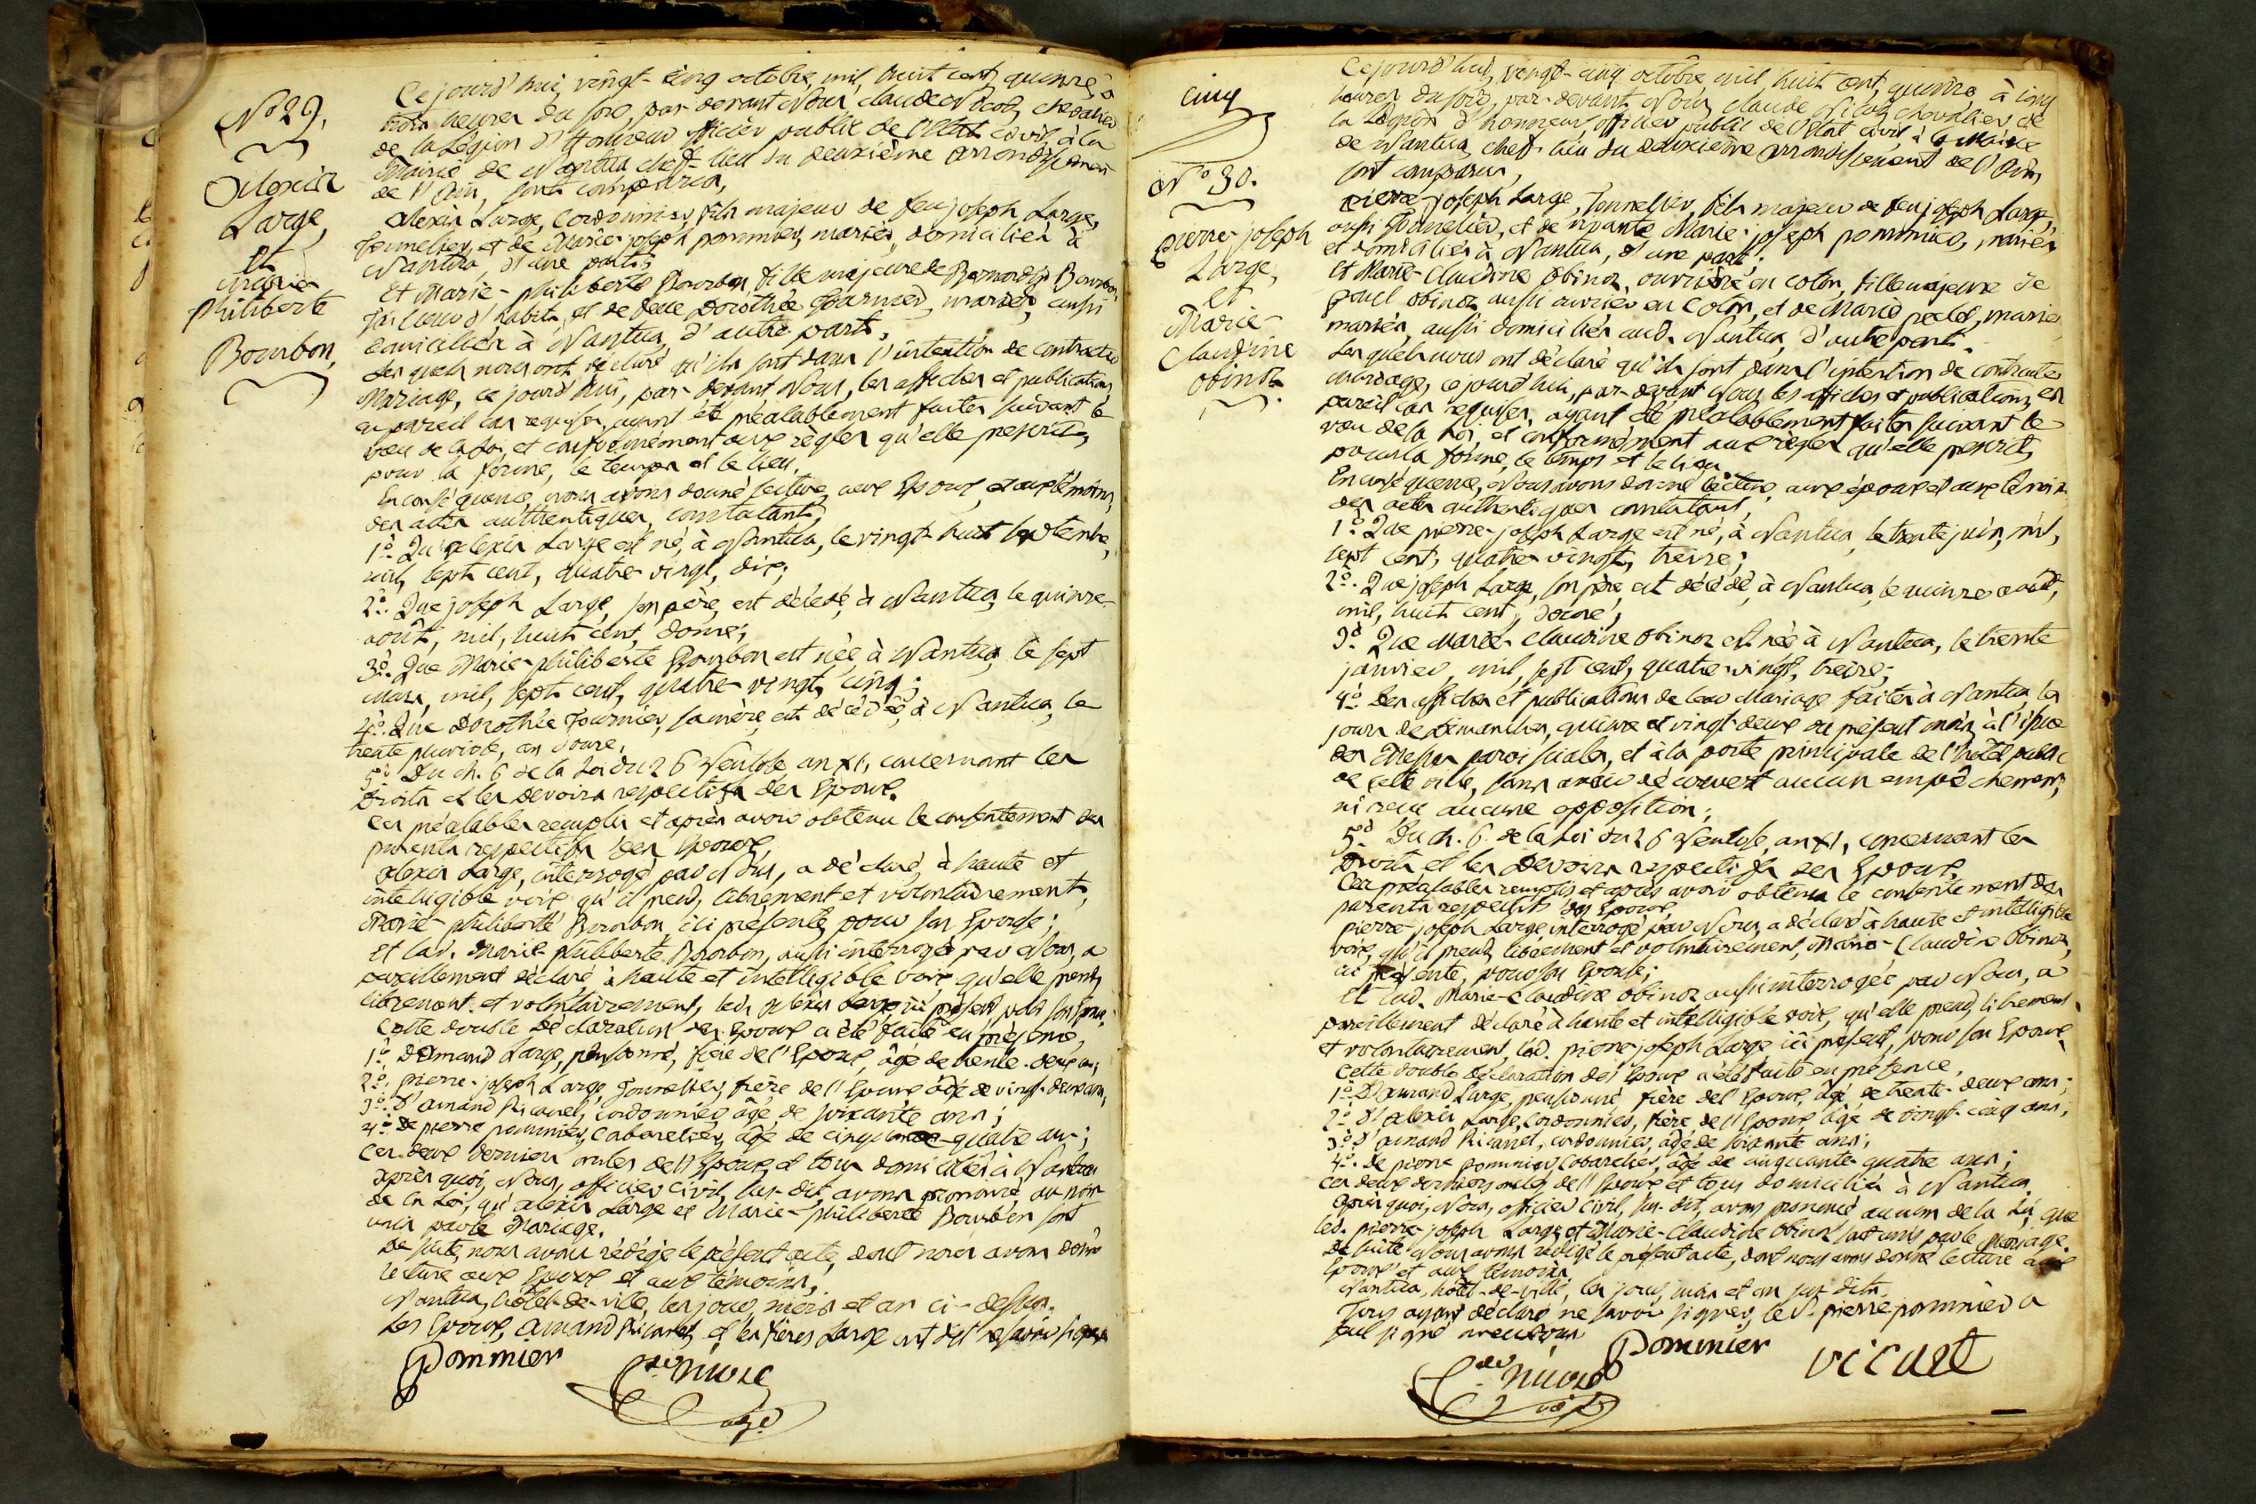 No 29.
Alexis
Large,
et
Marie
Philiberte
Bourbon,
Ce jourd'hui vingt-cinq octobre, mil, huit cent, quinze, à
trois heures du soir, par devant Nous Claude Nicod, chevalier
de la Légion d'Honneur officier public de l'Etat civil à la
Mairie de Nantua chef-lieu du deuxième arrondissement
de l'Ain, sont comparus,
Alexis Large, Cordonnier, fils majeur de feu joseph Large,
Tonnelier, et de Marie-joseph pommier, mariés, domiciliés à
Nantua, d'une part;
Et Marie-philiberte Bourbon, fille majeure de Bourbon,
Tailleur d'habits, et de feue Dorothée Fournier, mariés, aussi
domiciliés à Nantua, d'autre part.
Les quels nous ont déclaré qu'ils sont dans l'intention de contracter
Mariage, ce jourd'hui, par-devant Nous, les affiches et publications,
en pareil cas requises, ayant été préalablement faites suivant le
vœu de la Loi, et conformément aux règles qu'elle prescrit,
pour la forme, le temps et le lieu.
En conséquence, nous avons donné lecture, aux Epoux, et aux témoins,
des actes authentiques, constatant,
1o. Qu'alexis Large est né, à Nantua, le vingt-huit septembre,
mil, sept cent, quatre-vingt, dix;
2o. Que joseph Large, son père, est décédé, à Nantua, le quinze
août, mil, huit cent, douze;
3o. Que Marie-philiberte Bourbon est née, à Nantua, le sept
mars, mil, sept cent, quatre-vingt, cinq;
4o. Que Dorothée Fournier, sa mère, est décédée, à Nantua, le
trente pluviose, an douze.
5o. Du ch. 6 de la Loi du 26 Ventose an XI, concernant les
Droits et les Devoirs respectifs des Epoux.
Ces préalables remplis et après avoir obtenu le consentement des
parents respectifs des Epoux,
Alexis Large, interrogé par Nous, a déclaré, à haute et
intelligible voix, qu'il prend, librement et volontairement,
Marie-philiberte Bourbon, ici présente, pour son Epouse;
Et lad. Marie-philiberte Bourbon, aussi interrogée par Nous, a
pareillement déclaré à haute et intelligible voix, qu'elle prend,
librement et volontairement, led. Alexis Large ici présent pour son Epoux.
Cette double déclaration des Epoux a été faite en présence,
1o. Large, pensionné, frère de l'Epoux, âgé de trente-deux ans;
2o. pierre-joseph Large, Tonnelier, frère de l'Epoux âgé de vingt-deux ans,
3o. D'amand Ricanet, cordonnier, âgé de soixante ans;
4o. De pierre pommier, Cabaretier, âgé de cinquante-quatre ans;
Ces deux derniers oncles de l'Epoux, et tous domiciliés à Nantua
après quoi, Nous, officier civil, sus-dit, avons prononcé, au nom
de la Loi, qu'alexis Large et Marie-philiberte Bourbon sont
unis par le Mariage.
De suite, nous avons rédigé le présent acte, dont nous avons donné
lecture aux Epoux et aux témoins;
Nantua, hôtel-de-ville, les jour, mois et an ci-dessus.
Les Epoux, amand Ricanet, et les frères Large ont dit ne savoir signer
Pommier
cinq
No 30.
pierre-joseph
Large,
et
Marie-
Claudine
Obinoz
Ce jourd'hui, vingt-cinq octobre mil, huit cent, quinze à cinq
heures du soir, par-devant Nous Claude Nicod chevalier de
la Légion d'honneur, officier public de l'Etat civil, à la Mairie
de Nantua, chef-lieu du deuxième arrondissement de l'Ain,
sont comparus,
pierre-joseph Large, Tonnelier, fils majeur de feu joseph Large,
aussi Tonnelier, et de vivante Marie-joseph pommier, mariés
et domiciliés à Nantua, d'une part;
Et Marie-Claudine Obinoz, ouvrière en coton, fille majeure de
Obinoz aussi ouvrier en coton, et de Marie, mariés
mariés, aussi domiciliés aud. Nantua, d'autre part.
Les quels nous ont déclaré qu'ils sont dans l'intention de contracter
mariage, ce jourd'hui, par-devant Nous, les affiches et publications, en
pareil cas requises, ayant été préalablement faites suivant le
vœu de la Loi, et conformément aux règles qu'elle prescrit,
pour la forme, le temps et le lieu.
En conséquence, Nous avons donné lecture, aux époux et aux témoins
des actes authentiques constatant,
1o. Que pierre-joseph Large est né, à Nantua, le trente juin, mil,
sept cent, quatre-vingt, treize;
2o. Que joseph Large, son père est décédé, à Nantua, le quinze août,
mil, huit cent, douze;
3o. Que Marie-Claudine Obinoz est née à Nantua, le trente
janvier, mil, sept cent, quatre-vingt, treize;
4o. Des affiches et publications de leur Mariage faites à Nantua, les
jours de Dimanches, quinze et vingt-deux du présent mois, à l'issue
des Messes paroissiales, et à la porte principale de l'hôtel public
de cette ville, sans avoir découvert aucun empêchement,
ni reçu aucune opposition;
5o. Du ch. 6. de la Loi du 26 Ventose, an XI, concernant les
Droits et les Devoirs respectifs des Epoux.
Ces préalables remplis et après avoir obtenu le consentement des
parents respectifs des Epoux
pierre-joseph Large, interrogé par Nous, a déclaré à haute et intelligible
voix, qu'il prend, librement et volontairement, Marie-Claudine Obinoz,
ici présente, pour son Epouse;
Et lad. Marie-Claudine Obinoz aussi interrogée par Nous, a
pareillement déclaré à haute et intelligible voix, qu'elle prend, librement
et volontairement, led. pierre-joseph Large ici présent, pour son Epoux.
Cette double déclaration des Epoux a été faite en présence,
1o. Large, pensionné frère de l'Epoux, âgé de trente-deux ans;
2o. D'alexis Large, Cordonnier, frère de l'Epoux, âgé de vingt-cinq ans;
3o. D'amand Ricanet, cordonnier, âgé de soixante ans;
4o. De pierre pommier, Cabaretier, âgé de cinquante-quatre ans;
Ces deux derniers oncles de l'Epoux et tous domiciliés à Nantua.
Après quoi, Nous, officier civil, sus-dit, avons prononcé au nom de la Loi, que
led. pierre-joseph Large et Marie-Claudine Obinoz sont unis par le Mariage.
De suite Nous avons rédigé le présent acte, dont nous avons donné lecture aux
Epoux et aux témoins
Nantua, hôtel-de-ville, les jour, mois et an sus-dits.
Tous ayant déclaré ne savoir signer, le Sr. pierre pommier a
seul signé avec Nous
Pommier